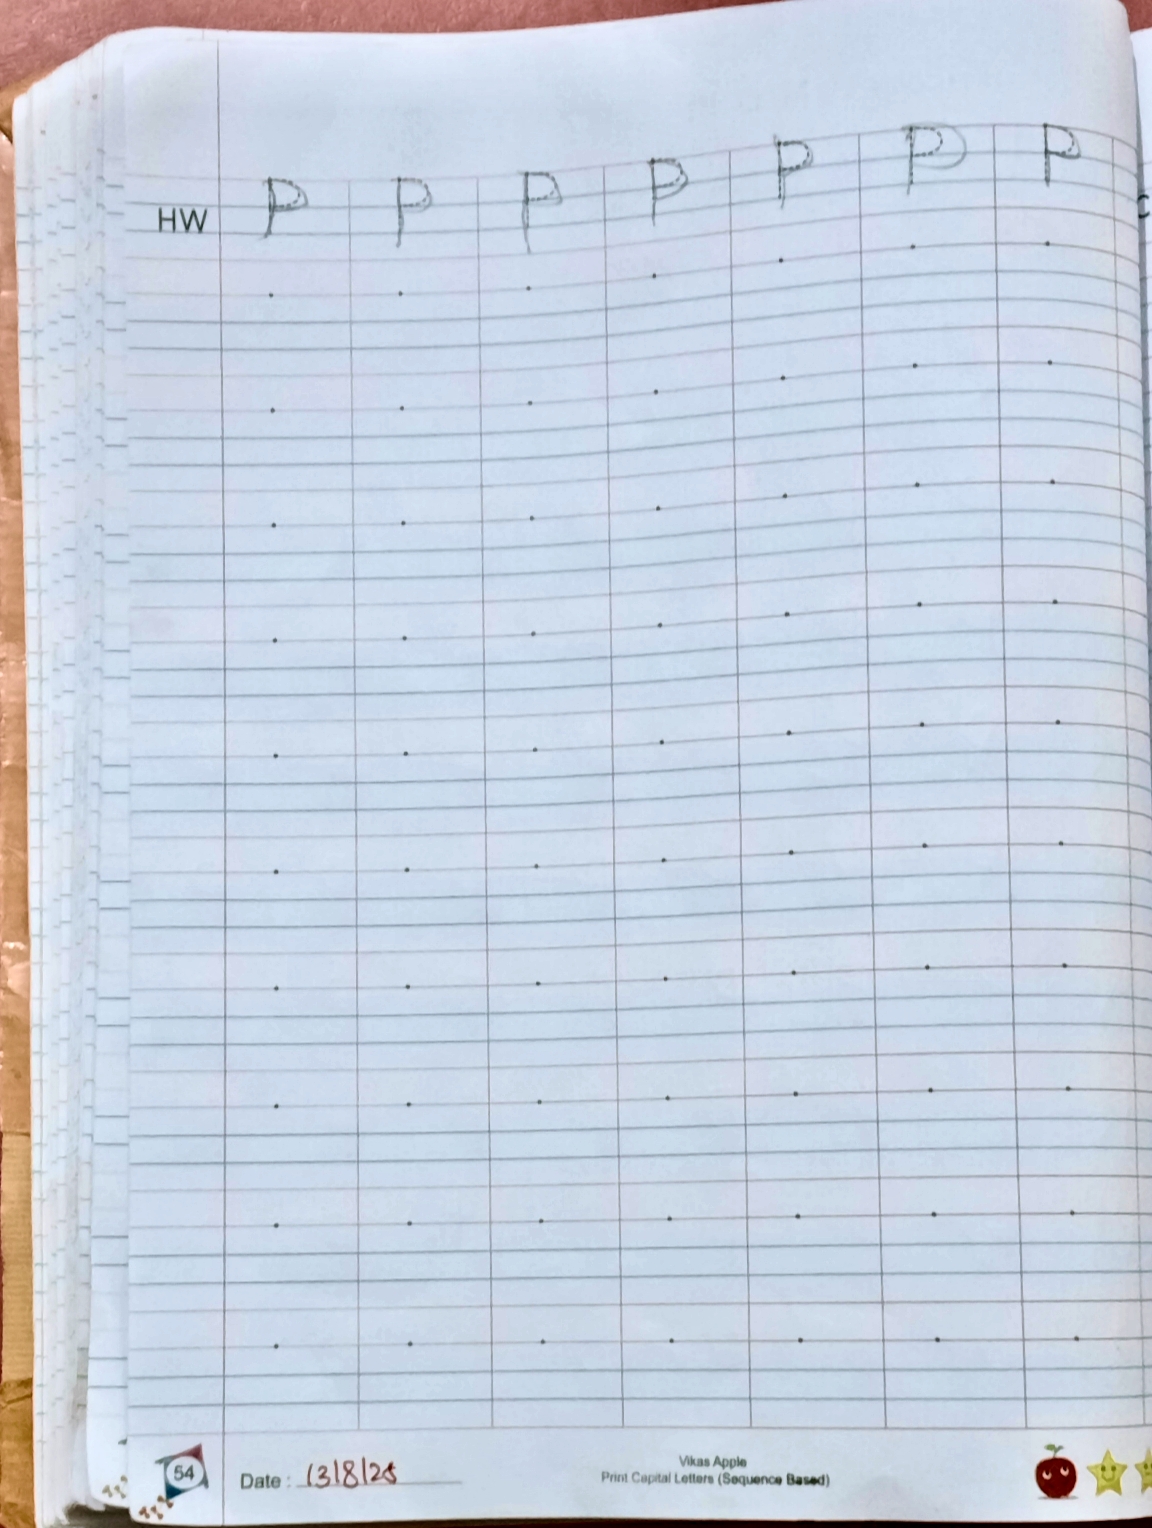 P P P P P P P
HW
54
Date : 13/8/25
Vikas Apple
Print Capital Letters (Sequence Based)